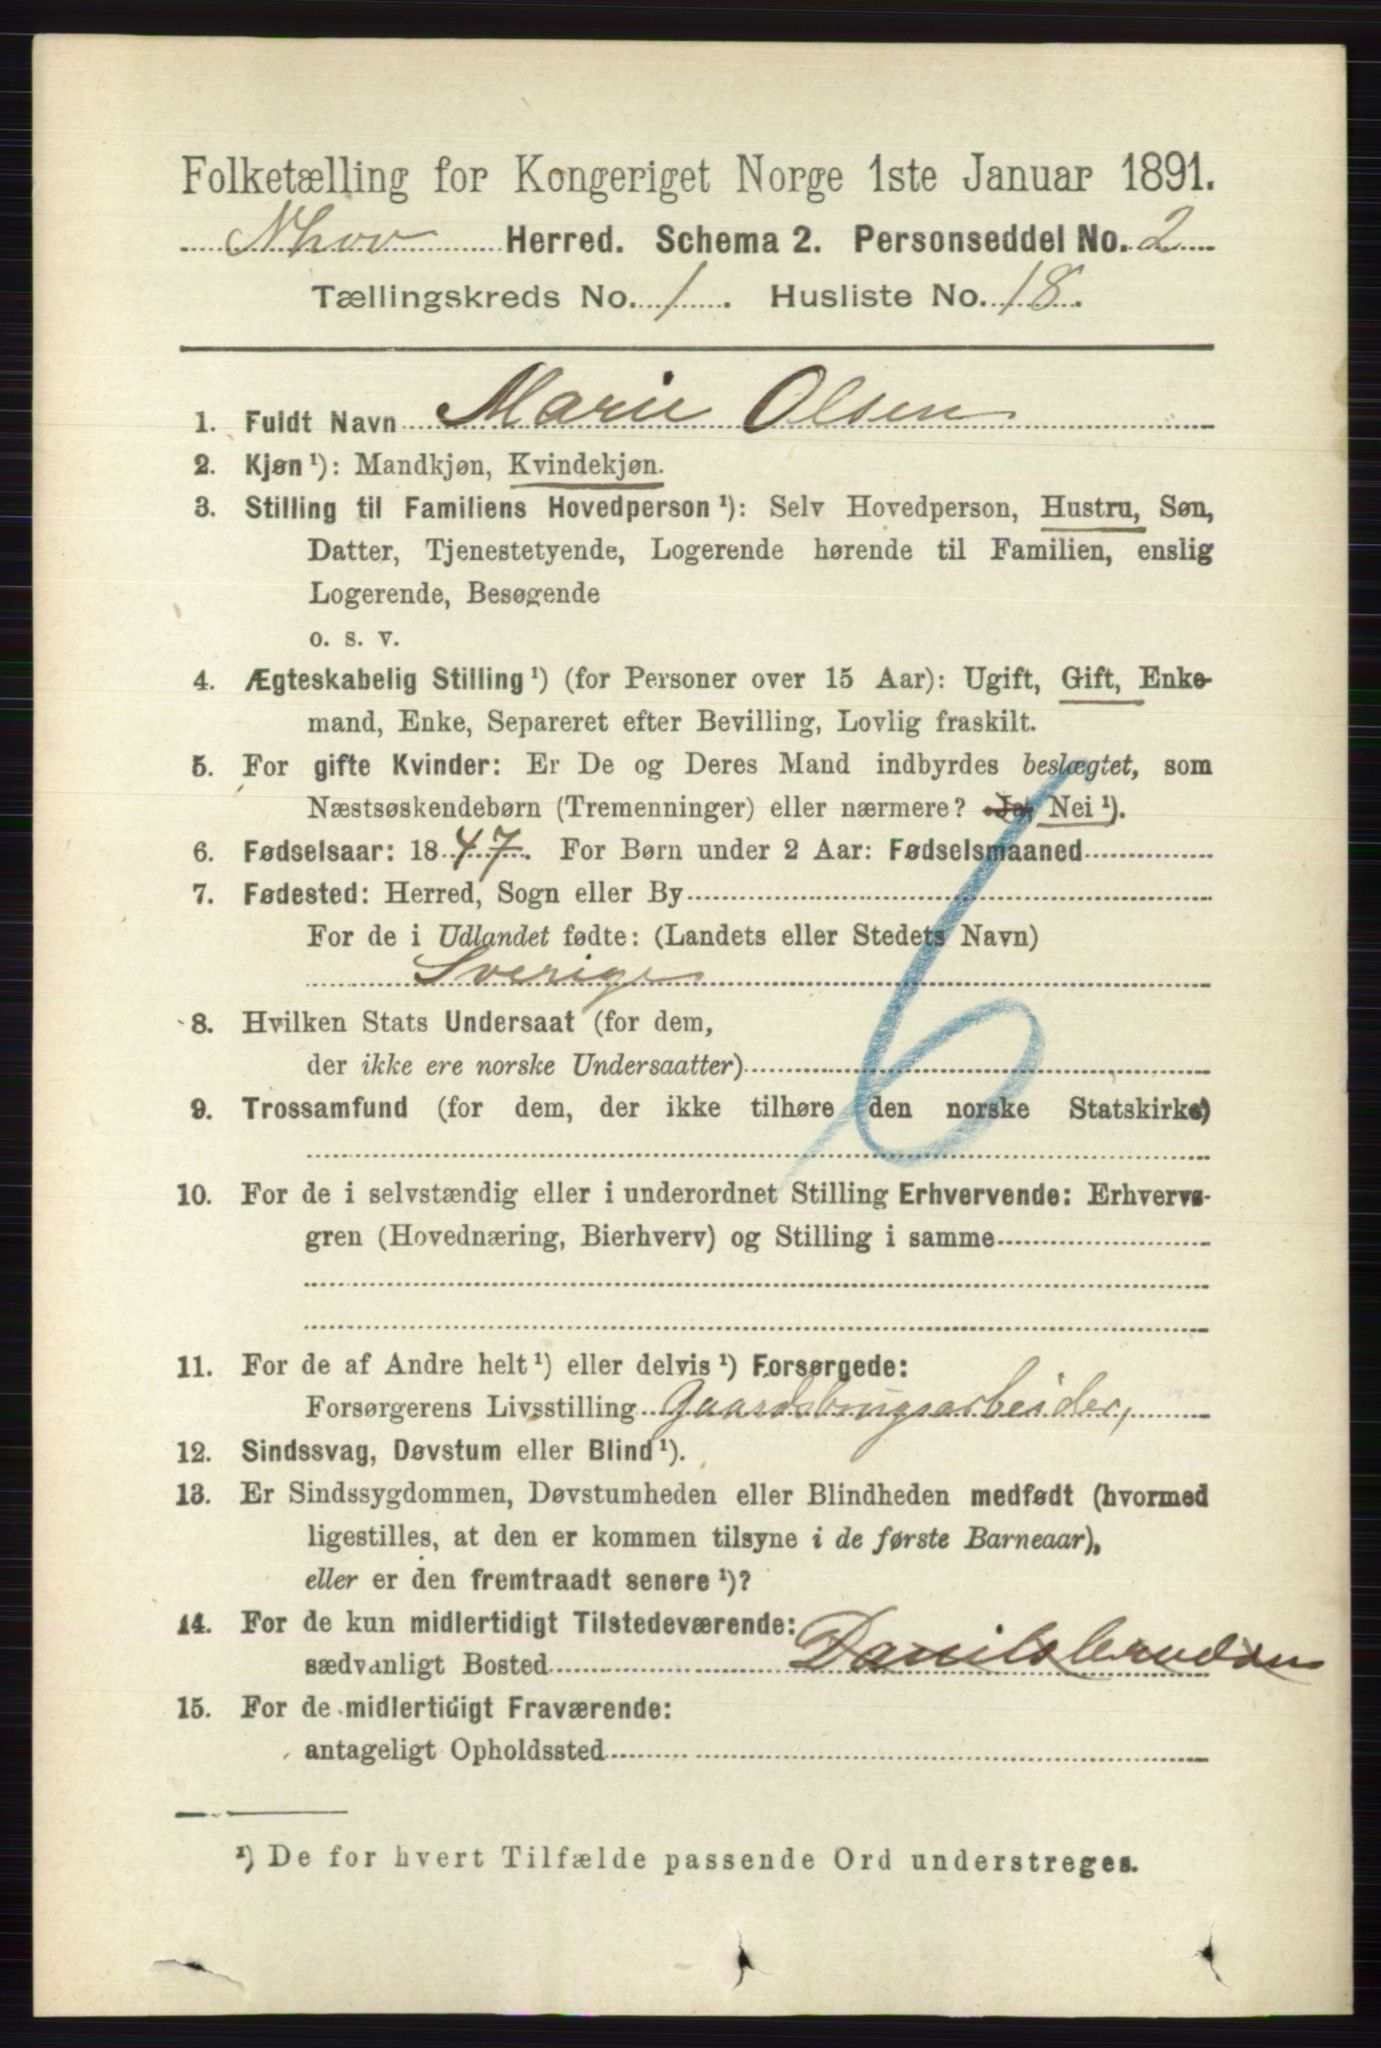 Folketælling for Kongeriget Norge 1ste Januar 1891.
Nhov Herred. Schema 2. Personseddel No. 2
Tællingskreds No. 1. Husliste No. 18.
1. Fuldt Navn Marie Olsen
2. Kjøn ¹): Mandkjøn, Kvindekjøn.
3. Stilling til Familiens Hovedperson ¹): Selv Hovedperson, Hustru, Søn,
Datter, Tjenestetyende, Logerende hørende til Familien, enslig
Logerende, Besøgende
o. s. v.
4. Ægteskabelig Stilling ¹) (for Personer over 15 Aar): Ugift, Gift, Enke-
mand, Enke, Separeret efter Bevilling, Lovlig fraskilt.
5. For gifte Kvinder: Er De og Deres Mand indbyrdes beslægtet, som
Næstsøskendebørn (Tremenninger) eller nærmere? Ja, Nei ¹).
6. Fødselsaar: 1847. For Børn under 2 Aar: Fødselsmaaned
7. Fødested: Herred, Sogn eller By
For de i Udlandet fødte: (Landets eller Stedets Navn)
Sverige
8. Hvilken Stats Undersaat (for dem,
der ikke ere norske Undersaatter)
9. Trossamfund (for dem, der ikke tilhøre den norske Statskirke)
10. For de i selvstændig eller i underordnet Stilling Erhvervende: Erhvervs-
gren (Hovednæring, Bierhverv) og Stilling i samme
11. For de af Andre helt ¹) eller delvis ¹) Forsørgede:
Forsørgerens Livsstilling Gaardsbrugsarbeider,
12. Sindssvag, Døvstum eller Blind ¹).
13. Er Sindssygdommen, Døvstumheden eller Blindheden medfødt (hvormed
ligestilles, at den er kommen tilsyne i de første Barneaar),
eller er den fremtraadt senere ¹)?
14. For de kun midlertidigt Tilstedeværende:
sædvanligt Bosted
15. For de midlertidigt Fraværende:
antageligt Opholdssted
¹) De for hvert Tilfælde passende Ord understreges.
6